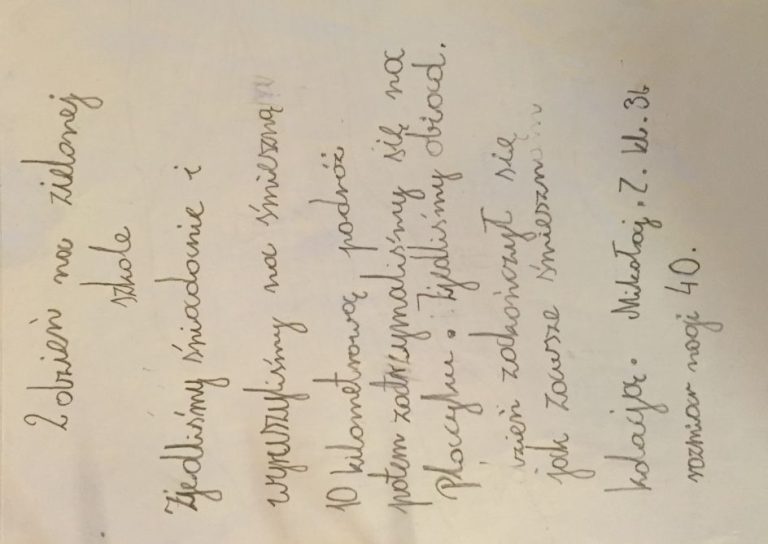 2 dzień na zielonej
szkole
Zjedliśmy śniadanie i
wyruszyliśmy na śmieszną
10 kilometrową podróż
potem zatrzymaliśmy się na
Placyku. Zjedliśmy obiad.
dzień zakończył się
jak zawsze śmieszną
kolacją. Mikołaj, Z. kl. 3b
rozmiar nogi 40.